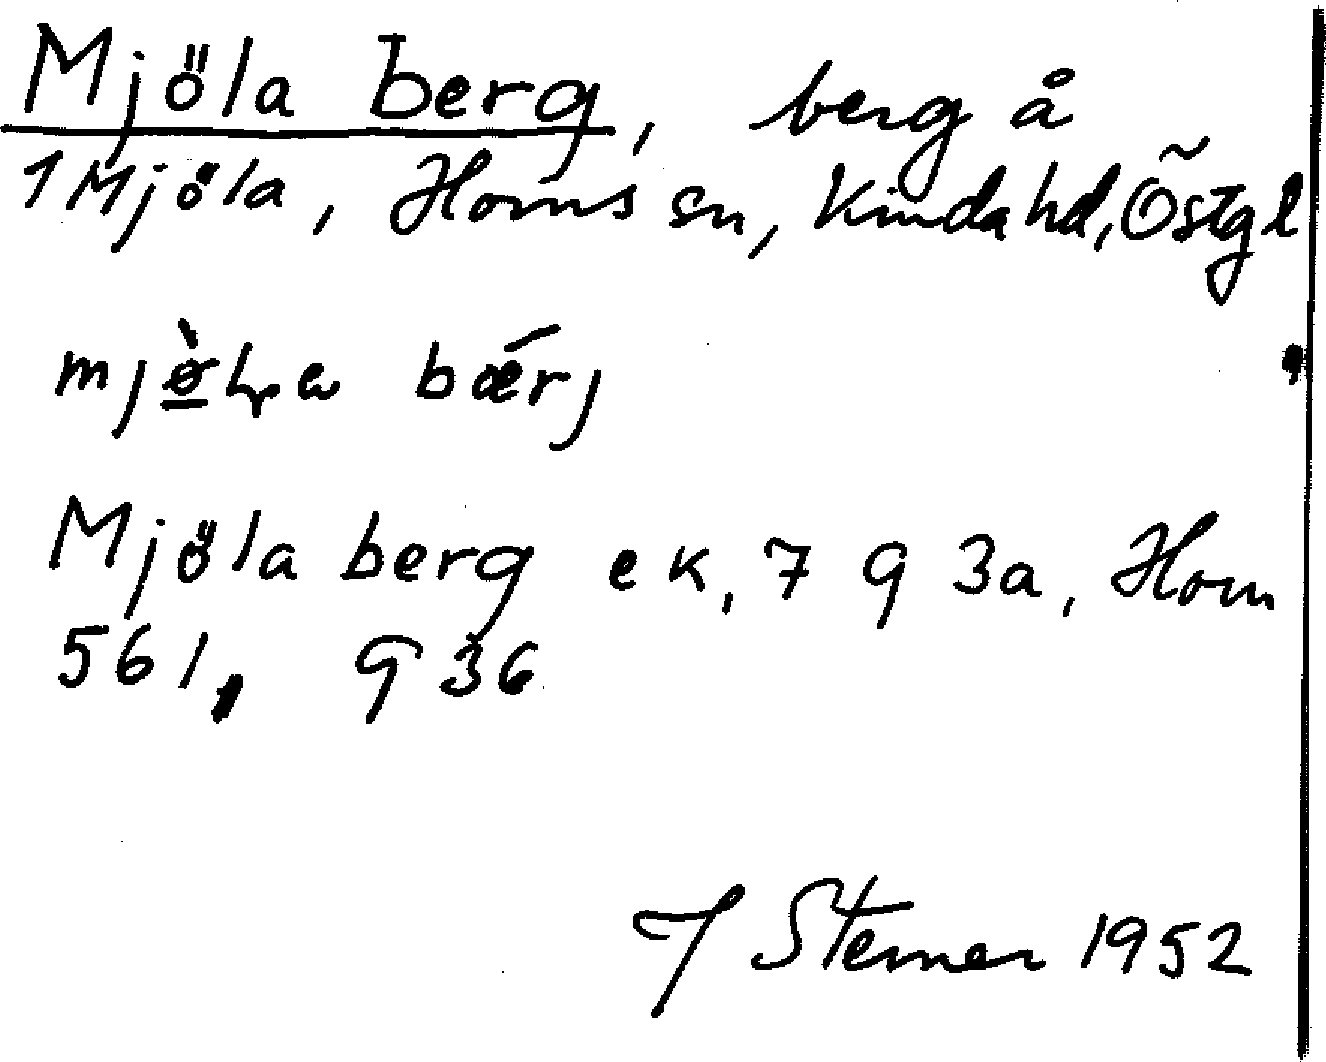 Mjöla berg, berg å
1 Mjöla, Horns sn, Kinda hd, Östgl
mjø̠̀ɭa bǽrj
Mjöla berg ek, 7 g 3a, Horn
561, g 36
J Sterner 1952